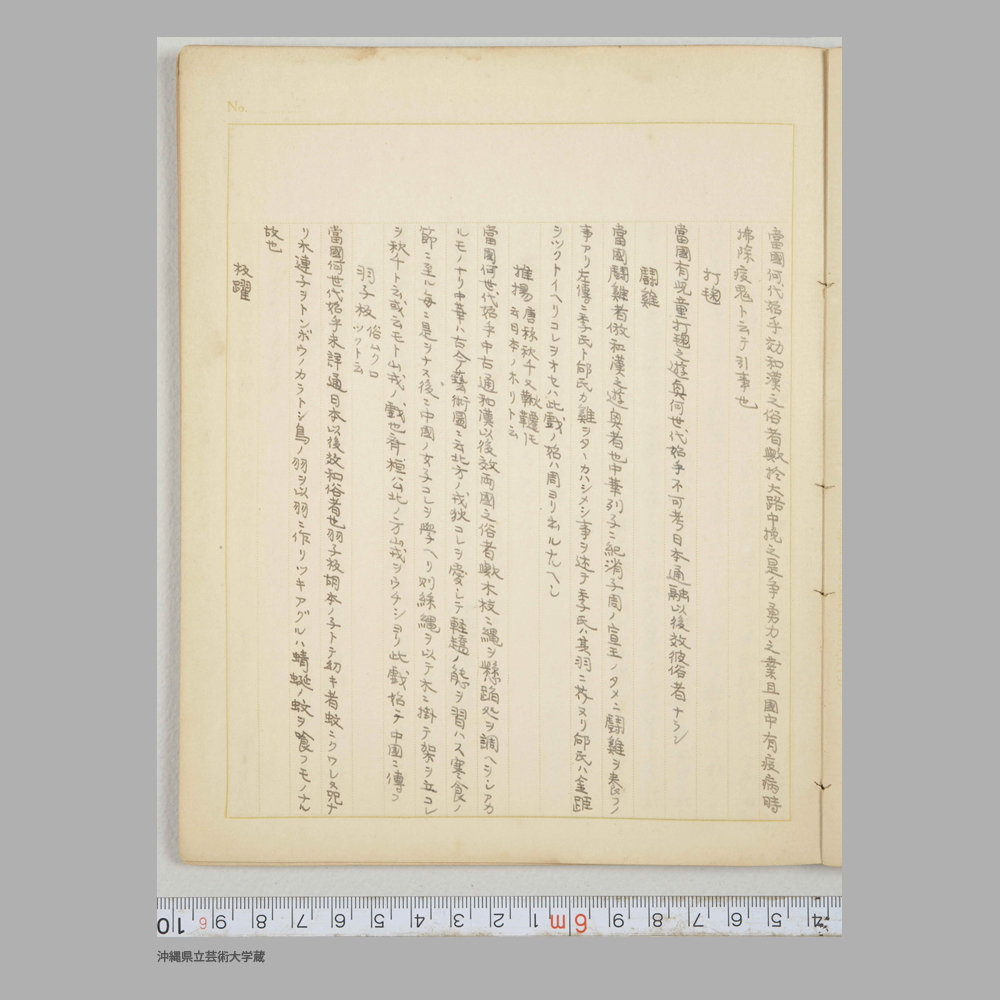 當國何代始乎効和漢之俗者歟於大路中挽之是争勇力之業且國中有疫病時
掃除疫鬼ト云テ引事也
打毬
當國有児童打毬之遊奥何世代始乎不可考日本通融以後效彼俗者ナラン
闘雞
當國闘雞者倣和漢之遊奥者也中華列子ニ紀渻子周ノ宣王ノタメニ闘雞ヲ養フノ
事アリ左傳ニ季氏ト郈氏カ雞ヲターカハシメシ事ヲ述テ季氏ハ其羽ニ芥ヌリ郈氏ハ金距
ヲツクトイヘリコレヲオモヘハ此戯ノ始ハ周ヨリ出ルナルヘシ
推揚 唐秋秋千又鞦韆トモ
云日本ノホリト云
當國何世代始乎中古通和漢以後效両國之俗者歟木枝ニ縄ヲ懸踏処ヲ調ヘシレアカ
ルモノナリ中華ハ古今藝術圖ニ云北方ノ戎狄コレヲ愛シテ軽趫ノ能ヲ習ハス寒食ノ
節ニ至ル毎ニ是ヲナス後ニ中國ノ女子コレヲ學ヘリ別綵縄ヲ以テ木ニ掛テ架ヲ立コレ
ヲ秋千ト云或云モト山戎ノ戯也齊桓公北ノ方山戎ヲウチショリ此戯始テ中國ニ傳フ
羽子板 俗ムクロ
ツクト云
當國何世代始乎未詳通日本以後效和俗者也羽子板胡本ノ子トテ幼キ者蚊ニクワレヌ咒ナ
リ氷連子ヲトンボウノカラトシ鳥ノ羽ヲ以羽ニ作リツキアグルハ蜻蜓ノ蚊ヲ喰フモノナル
故也
板躍
No.
10 9 8 7 6 5 4 3 2 1 6m 9 8 7 6 5 4
沖縄県立芸術大学蔵